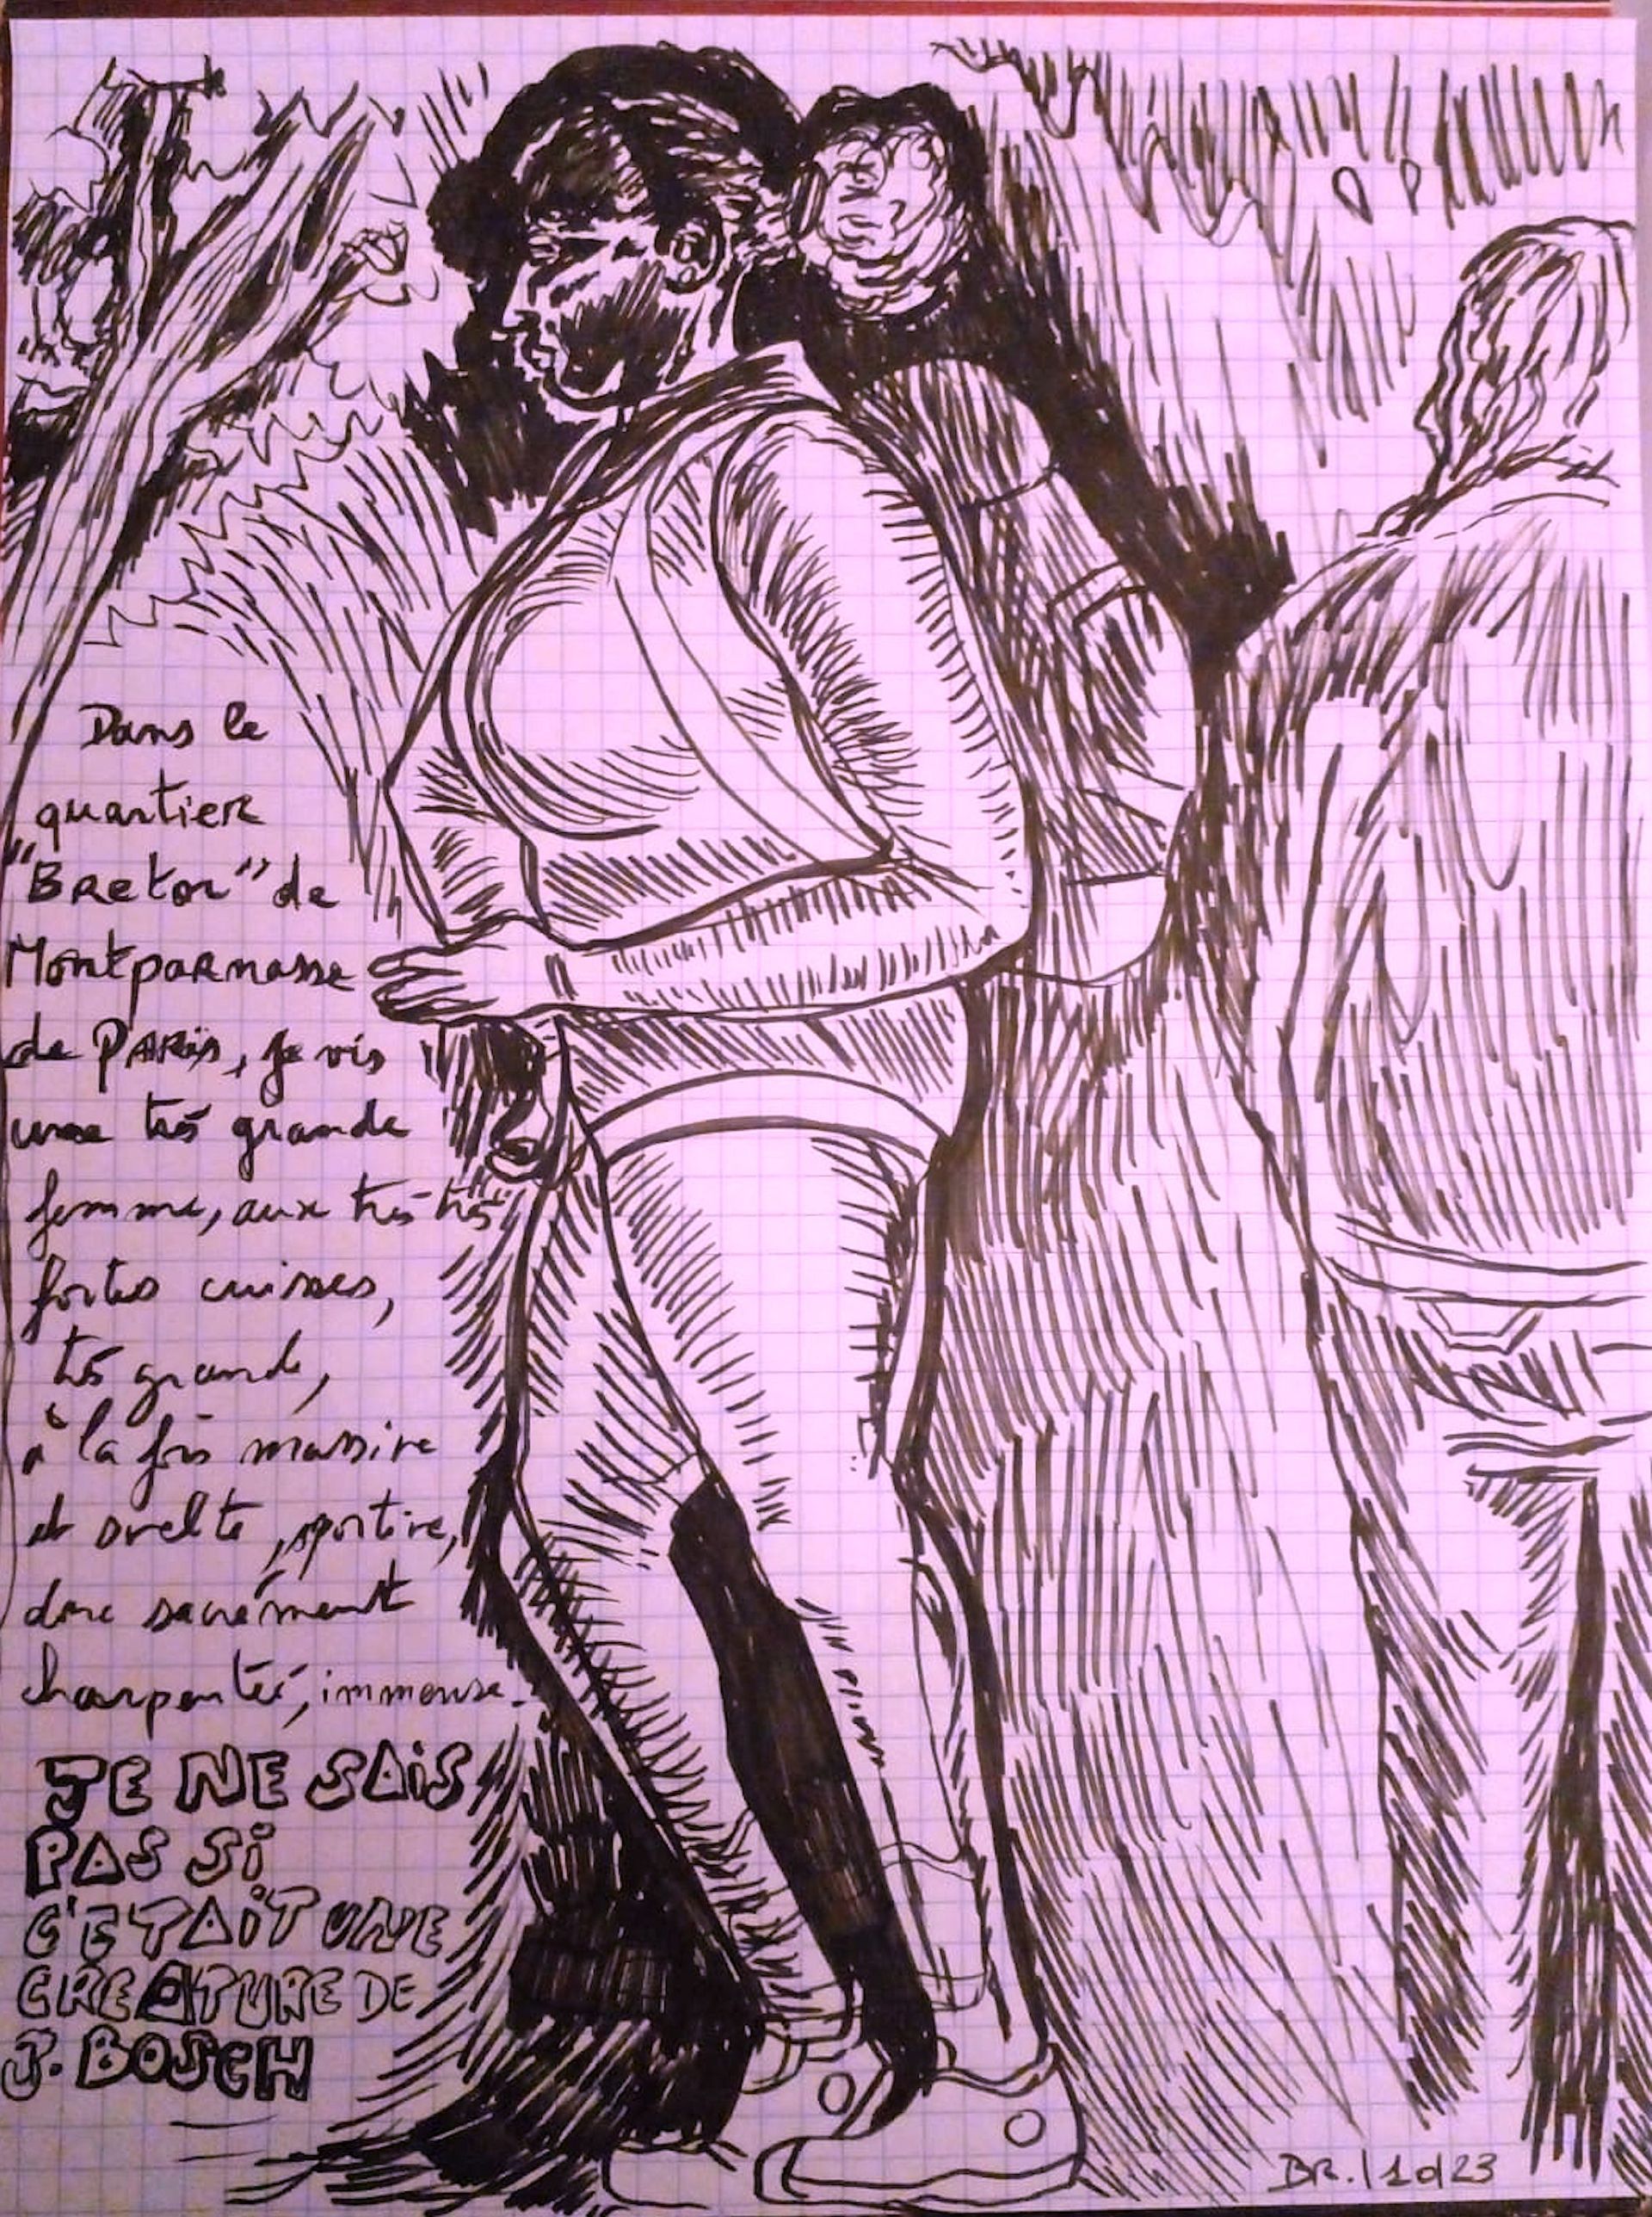 Dans le
quartier
"Breton" de
Montparnasse
de PARis, je vis
une très grande
femme, aux très très
fortes cuisses,
très grande,
à la fois massive
et svelte, sportive,
donc sacrément
charpentée, immense.
JE NE SAiS
PAS Si
C'ETAiT UNE
CREATURE DE
J. BOSCH
BR. / 10/23